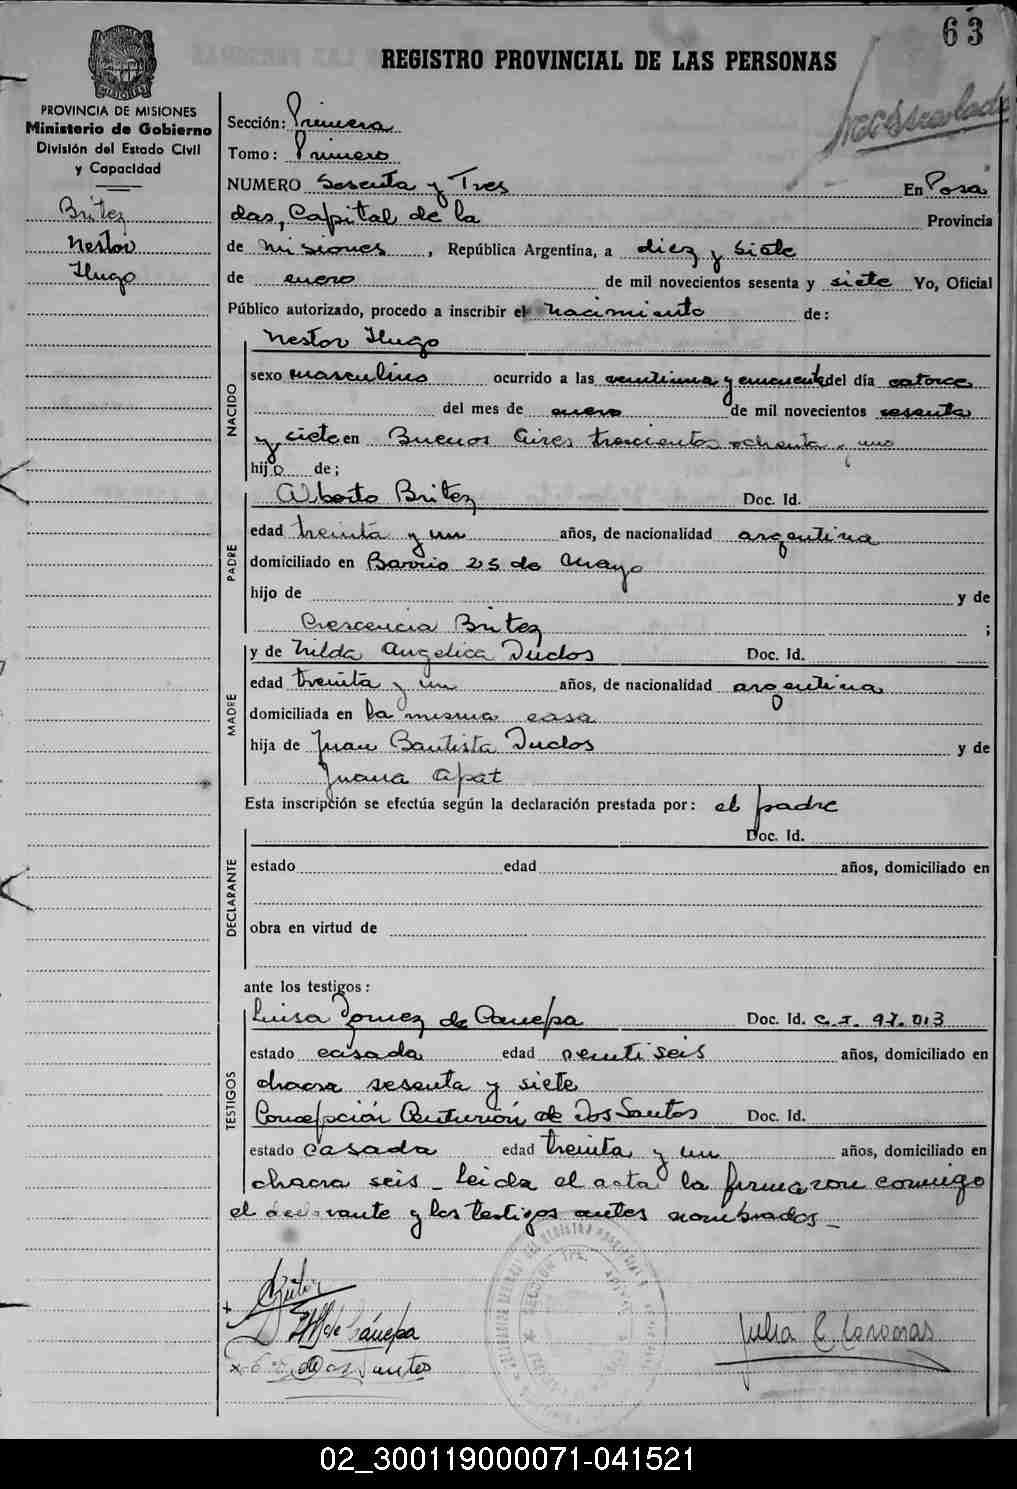 63
REGISTRO PROVINCIAL DE LAS PERSONAS
PROVINCIA DE MISIONES
Ministerio de Gobierno
División del Estado Civil
y Capacidad
Britez
Nestor
Hugo
Sección: Primera
Tomo: Primero
NUMERO Sesenta y Tres En Posa
das, Capital de la Provincia
de Misiones, República Argentina, a diez y siete
de enero de mil novecientos sesenta y siete Yo, Oficial
Público autorizado, procedo a inscribir el nacimiento de:
NACIDO
Nestor Hugo
sexo masculino ocurrido a las veintiuna y cincuenta del día catorce
del mes de enero de mil novecientos sesenta
y siete en Buenos Aires trescientos ochenta y uno
hijo de;
PADRE
Alberto Britez Doc. Id.
edad treinta y un años, de nacionalidad argentina
domiciliado en Barrio 25 de Mayo
hijo de y de
Crescencia Britez ;
MADRE
y de Hilda Angelica Duclos Doc. Id.
edad treinta y un años, de nacionalidad argentina
domiciliada en la misma casa
hija de Juan Bautista Duclos y de
Juana Apat
Esta inscripción se efectúa según la declaración prestada por: el padre
DECLARANTE
Doc. Id.
estado edad años, domiciliado en
obra en virtud de
ante los testigos:
TESTIGOS
Luisa Gomez de Canepa Doc. Id. C.I. 97.013
estado casada edad veintiseis años, domiciliado en
chacra sesenta y siete
Concepción Centurión de Dos Santos Doc. Id.
estado casada edad treinta y un años, domiciliado en
chacra seis - Leida el acta la firmaron conmigo
el declarante y los testigos antes nombrados -
Britez
de Cánepa
Dos Santos
Julia C.
02_300119000071-041521